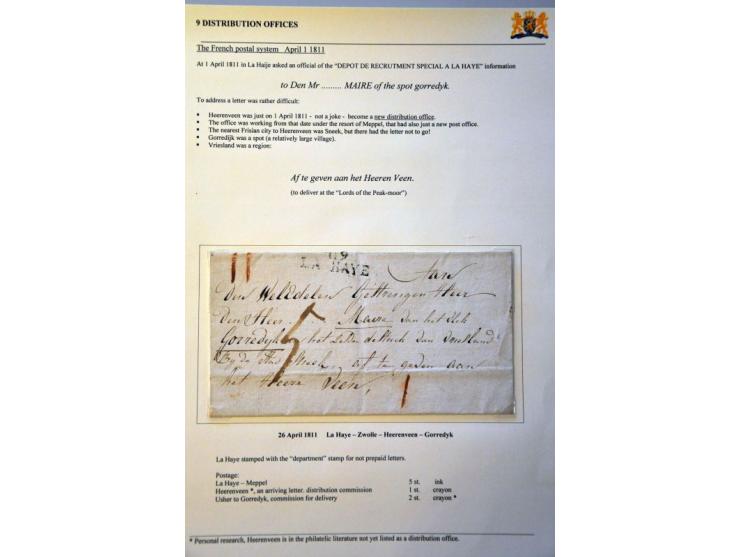 9 DISTRIBUTION OFFICES
The French postal system April 1 1811
At 1 April 1811 in La Haije asked an official of the "DEPOT DE RECRUTMENT SPECIAL A LA HAYE" information
to Den Mr ......... MAIRE of the spot gorredyk.
To address a letter was rather difficult:
• Heerenveen was just on 1 April 1811 - not a joke - become a new distribution office.
• The office was working from that date under the resort of Meppel, that had also just a new post office.
• The nearest Frisian city to Heerenveen was Sneek, but there had the letter not to go!
• Gorredijk was a spot (a relatively large village).
• Vriesland was a region:
Af te geven aan het Heeren Veen.
(to deliver at the "Lords of the Peak-moor")
119
LA HAYE
Aan
Den WelEdelen Heer
Den Heer Maire van het
Gorredyk het van
By de af te geven aan
het Heere Veen,
26 April 1811 La Haye – Zwolle – Heerenveen – Gorredyk
La Haye stamped with the "department" stamp for not prepaid letters.
Postage:
La Haye – Meppel 5 st. ink
Heerenveen *, an arriving letter. distribution commission 1 st. crayon
Usher to Gorredyk, commission for delivery 2 st. crayon *
* Personal research, Heerenveen is in the philatelic literature not yet listed as a distribution office.